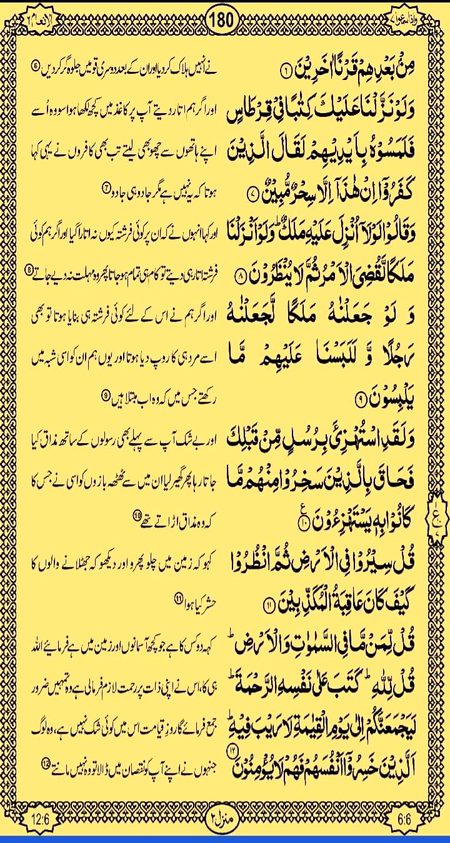 واذا سمعوا ٧
180
الانعام ٦
مِنْۢ بَعْدِهِمْ قَرْنًا اٰخَرِيْنَ ۶
نے انہیں ہلاک کردیا اور ان کے بعد دوسری قومیں جلوہ گر کردیں ۶
وَلَوْ نَزَّلْنَا عَلَيْكَ كِتٰبًا فِيْ قِرْطَاسٍ
اور اگر ہم اتار دیتے آپ پر کاغذ میں کچھ لکھا ہوا سو وہ اُسے
فَلَمَسُوْهُ بِاَيْدِيْهِمْ لَقَالَ الَّذِيْنَ
اپنے ہاتھوں سے چھو بھی لیتے تب بھی کافروں نے یہی کہا
كَفَرُوْٓا اِنْ هٰذَآ اِلَّا سِحْرٌ مُّبِيْنٌ ۷
ہوتا کہ یہ نہیں ہے مگر جادو ہی جادو ۷
وَقَالُوْا لَوْلَآ اُنْزِلَ عَلَيْهِ مَلَكٌ ؕ وَلَوْ اَنْزَلْنَا
اور کہا انہوں نے کہ ان پر کوئی فرشتہ کیوں نہ اتارا گیا اور اگر ہم کوئی
مَلَكًا لَّقُضِيَ الْاَمْرُ ثُمَّ لَا يُنْظَرُوْنَ ۸
فرشتہ اتار ہی دیتے تو کام ہی تمام ہوجاتا پھر وہ مہلت نہ دیے جاتے ۸
وَ لَوْ جَعَلْنٰهُ مَلَكًا لَّجَعَلْنٰهُ
اور اگر ہم نے اس کے لئے کوئی فرشتہ ہی بنایا ہوتا تو بھی
رَجُلًا وَّ لَلَبَسْنَا عَلَيْهِمْ مَّا
اسے مرد ہی کا روپ دیا ہوتا اور یوں ہم ان کو اسی شبہ میں
يَلْبِسُوْنَ ۹
رکھتے جس میں کہ وہ اب مبتلا ہیں ۹
وَلَقَدِ اسْتُهْزِئَ بِرُسُلٍ مِّنْ قَبْلِكَ
اور بے شک آپ سے پہلے بھی رسولوں کے ساتھ مذاق کیا
فَحَاقَ بِالَّذِيْنَ سَخِرُوْا مِنْهُمْ مَّا
جاتا رہا پھر گھیر لیا ان میں سے ٹھٹھہ بازوں کو اسی نے جس کا
كَانُوْا بِهٖ يَسْتَهْزِءُوْنَ ۱۰ ع
کہ وہ مذاق اڑاتے تھے ۱۰
قُلْ سِيْرُوْا فِي الْاَرْضِ ثُمَّ انْظُرُوْا
کہو کہ زمین میں چلو پھرو اور دیکھو کہ جھٹلانے والوں کا
كَيْفَ كَانَ عَاقِبَةُ الْمُكَذِّبِيْنَ ۱۱
حشر کیا ہوا ۱۱
قُلْ لِّمَنْ مَّا فِي السَّمٰوٰتِ وَالْاَرْضِ ؕ
کہہ دو کس کا ہے جو کچھ آسمانوں اور زمین میں ہے فرمائیے اللہ
قُلْ لِّلّٰهِ ؕ كَتَبَ عَلٰى نَفْسِهِ الرَّحْمَةَ ؕ
ہی کا، اس نے اپنی ذات پر رحمت لازم فرمالی ہے وہ تمہیں ضرور
لَيَجْمَعَنَّكُمْ اِلٰى يَوْمِ الْقِيٰمَةِ لَا رَيْبَ فِيْهِ ؕ
جمع فرمائے گا روز قیامت اس میں کوئی شک نہیں ہے، وہ لوگ
اَلَّذِيْنَ خَسِرُوْٓا اَنْفُسَهُمْ فَهُمْ لَا يُؤْمِنُوْنَ ۱۲
جنہوں نے اپنے آپ کو نقصان میں ڈالا تو وہ نہیں مانتے ۱۲
6:6
منزل ۲
12:6